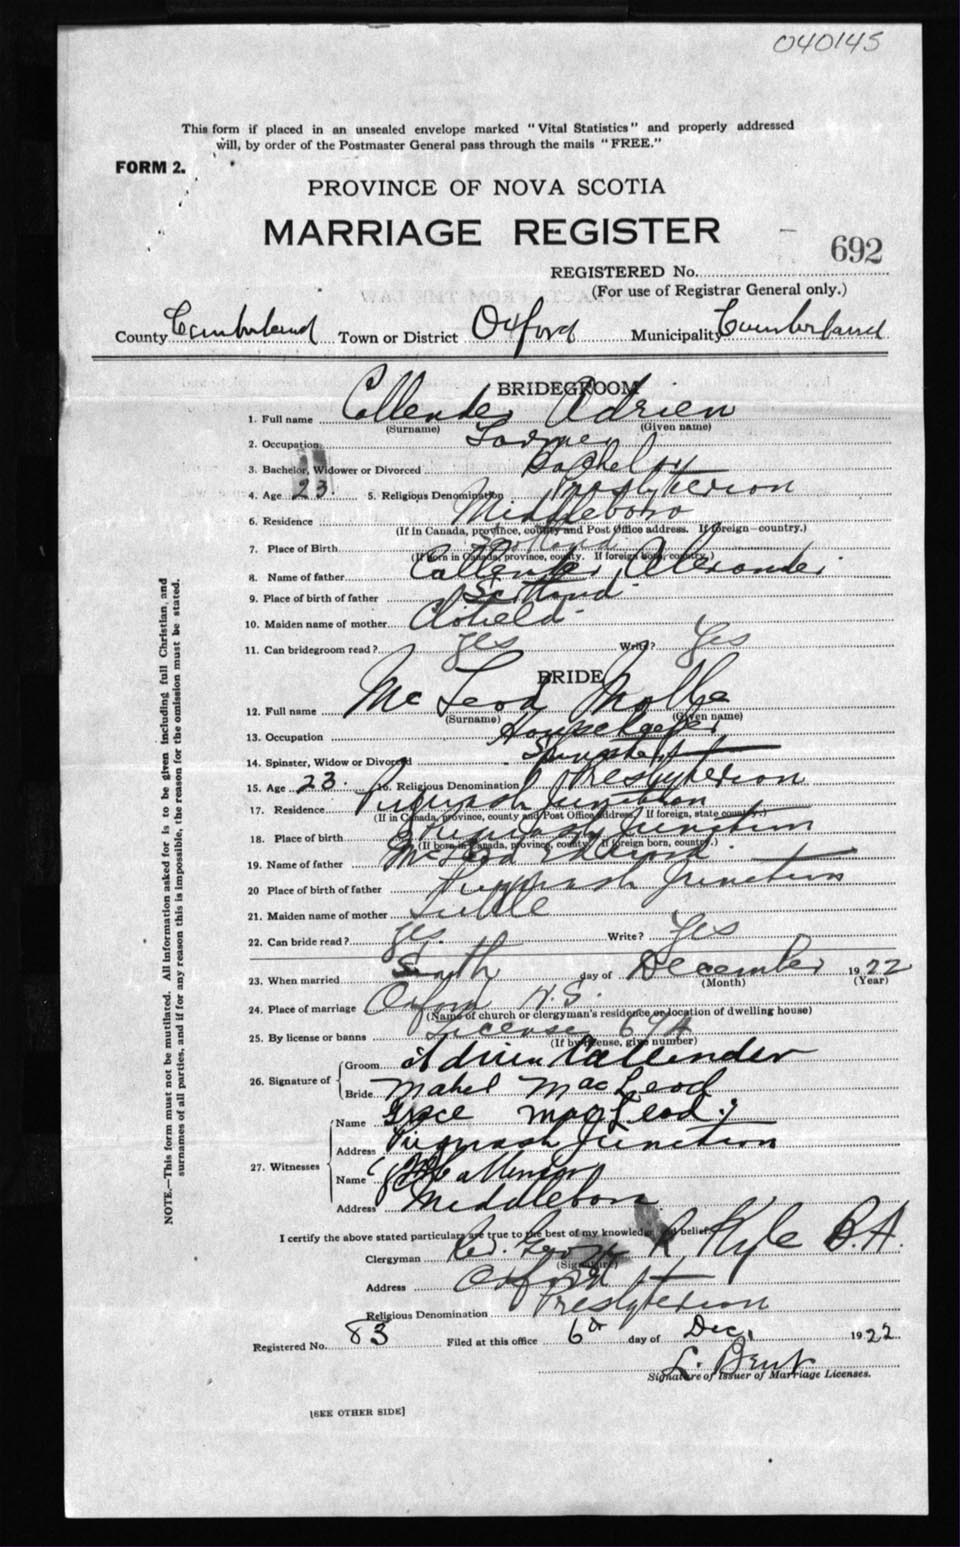 040145
This form if placed in an unsealed envelope marked "Vital Statistics" and properly addressed
will, by order of the Postmaster General pass through the mails "FREE."
FORM 2.
PROVINCE OF NOVA SCOTIA
MARRIAGE REGISTER
692
REGISTERED No.
(For use of Registrar General only.)
County Cumberland Town or District Oxford Municipality Cumberland
BRIDEGROOM
1. Full name Callender Adrien
(Surname) (Given name)
2. Occupation Farmer
3. Bachelor, Widower or Divorced Bachelor
4. Age 23. 5. Religious Denomination Presbyterion
6. Residence Middleboro
(If in Canada, province, county and Post Office address. If foreign—country.)
7. Place of Birth Scotland
(If born in Canada, province, county. If foreign born, country.)
8. Name of father Callender, Alexander
9. Place of birth of father Scotland
10. Maiden name of mother
11. Can bridegroom read? Yes Write? Yes
BRIDE
12. Full name McLeod
(Surname) (Given name)
13. Occupation Housekeeper
14. Spinster, Widow or Divorced Spinster
15. Age 23. 16. Religious Denomination Presbyterion
17. Residence Pugwash Junction
(If in Canada, province, county and Post Office Address. If foreign, state country.)
18. Place of birth Pugwash Junction
(If born in Canada, province, county. If foreign born, country.)
19. Name of father McLeod
20 Place of birth of father Pugwash Junction
21. Maiden name of mother
22. Can bride read? Yes. Write? Yes
23. When married day of December 1922
(Month) (Year)
24. Place of marriage Oxford N.S.
(Name of church or clergyman's residence or location of dwelling house)
25. By license or banns License
(If by license, give number)
26. Signature of
Groom Adrien Callender
Bride Mabel MacLeod
27. Witnesses
Name Grace MacLeod
Address Pugwash Junction
Name
Address Middleboro
I certify the above stated particulars are true to the best of my knowledge and belief.
Clergyman Rev. R. Kyle B.A.
(Signature)
Address Oxford
Religious Denomination Presbyterion
Registered No. 83 Filed at this office 6th day of Dec. 1922
L. Bent
Signature of Issuer of Marriage Licenses.
[SEE OTHER SIDE]
NOTE.—This form must not be mutilated. All information asked for is to be given including full Christian, and
surnames of all parties, and if for any reason this is impossible, the reason for the omission must be stated.